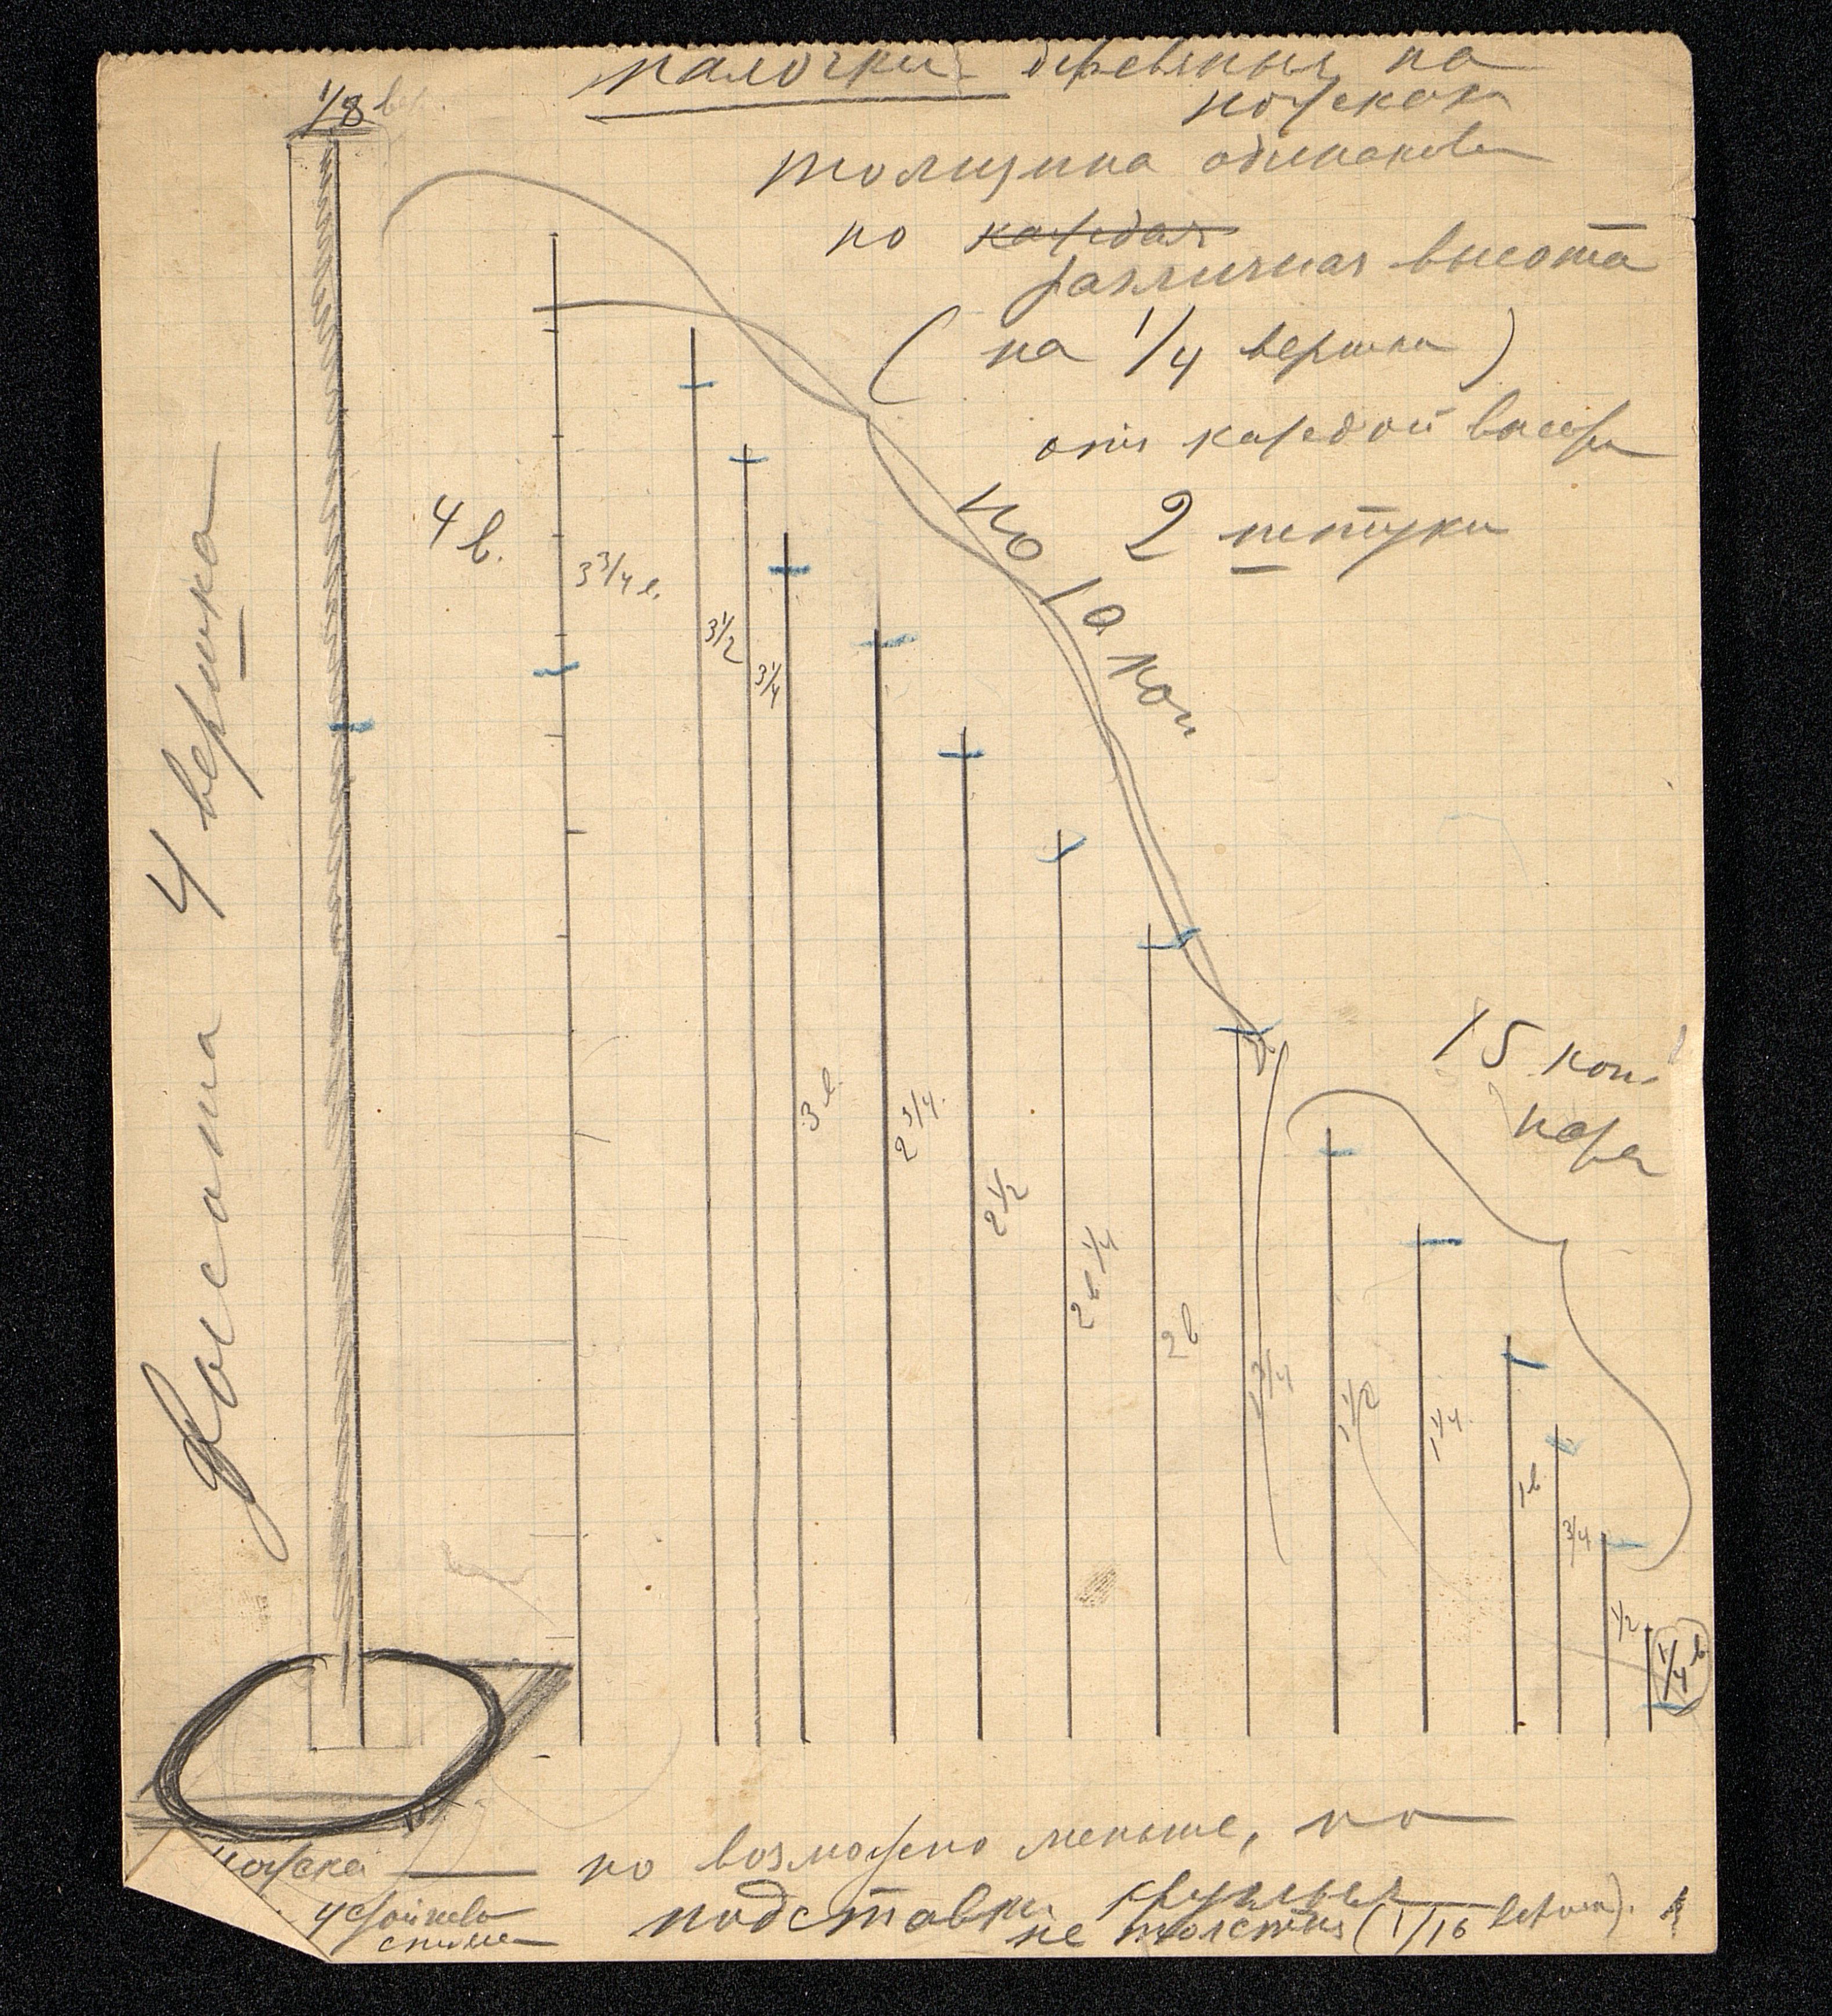 1/8 вер.
палочки деревяныя на
ножках
толщина одинакова
но каждая
различная высота
(на 1/4 вершка)
от каждой высоты
2 штуки
4 в.
3 3/4 в.
3 1/2
3 1/4
3 в.
2 3/4.
2 1/2
2 в 1/4
2 в
1 3/4
1 1/2
1 1/4.
1 в
3/4
1/2
1/4 в
по 10 коп
15 коп.
пара
Высота 4 вершка
ножка — по возможно меньше, но
устойчиво
подставки круглыя
не толстыя (1/16 вершка).